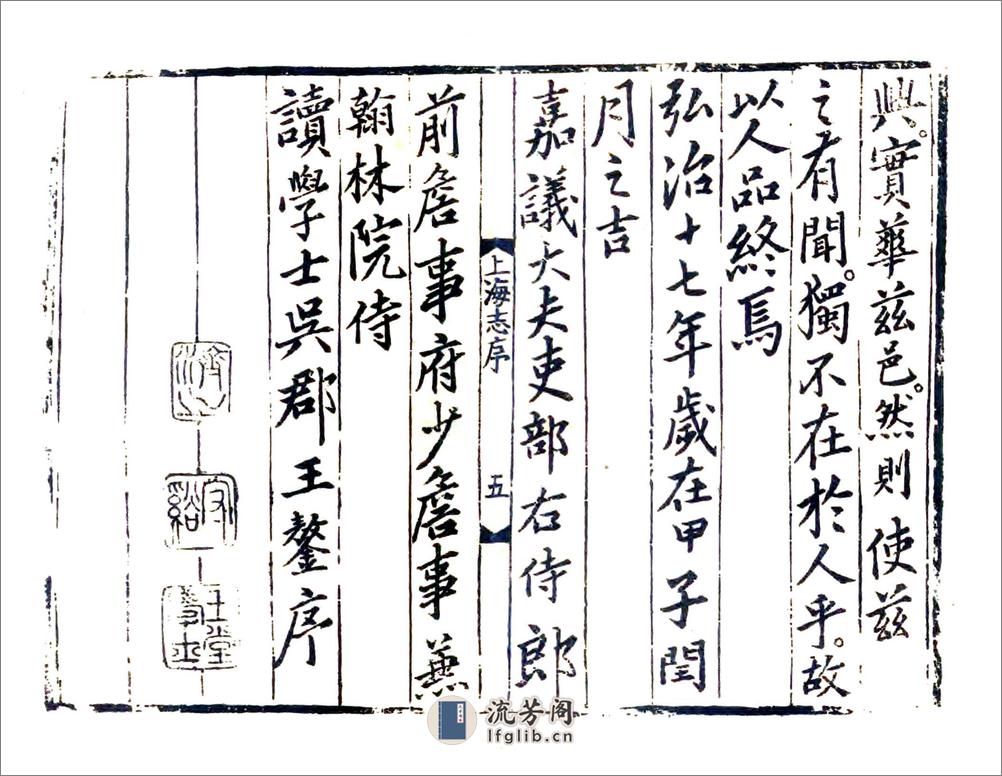 典。實華茲邑。然則使茲
之有聞。獨不在於人乎。故
以人品終焉
弘治十七年歲在甲子閏
月之吉
嘉議大夫吏部右侍郎
上海志序
五
前詹事府少詹事兼
翰林院侍
讀學士吳郡王鏊序
濟之
玉堂學士
流芳阁
lfglib.cn